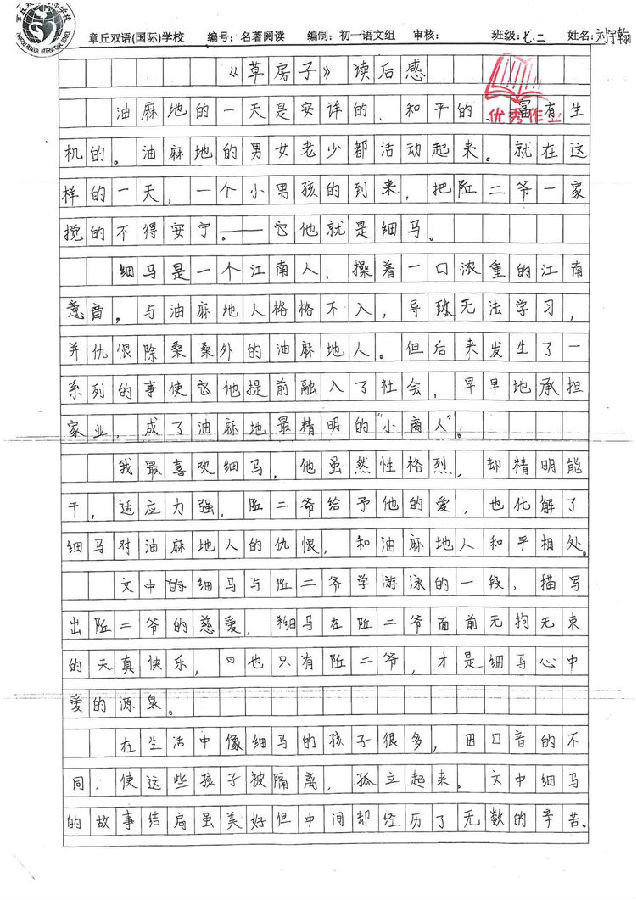 章丘双语(国际)学校 编号：名著阅读 编制：初一语文组 审核： 班级：七二 姓名：
《草房子》读后感
优秀作业
油麻地的一天是安详的、和平的、富有生
机的。油麻地的男女老少都活动起来。就在这
样的一天，一个小男孩的到来，把邱二爷一家
搅的不得安宁。——他就是细马。
细马是一个江南人，操着一口浓重的江南
意音。与油麻地人格格不入，导致无法学习，
并仇恨除桑桑外的油麻地人。但后来发生了一
系列的事使他提前融入了社会，早早地承担
家业，成了油麻地最精明的“小商人”。
我最喜欢细马，他虽然性格烈，却精明能
干，适应力强，邱二爷给予他的爱，也化解了
细马对油麻地人的仇恨，和油麻地人和平相处。
文中细马与邱二爷学游泳的一段，描写
出邱二爷的慈爱，细马在邱二爷面前无拘无束
的天真快乐，也只有邱二爷，才是细马心中
爱的源泉。
在生活中像细马的孩子很多，因口音的不
同，使这些孩子被隔离，孤立起来。文中细马
的故事结局虽美好但中间却经历了无数的辛苦。